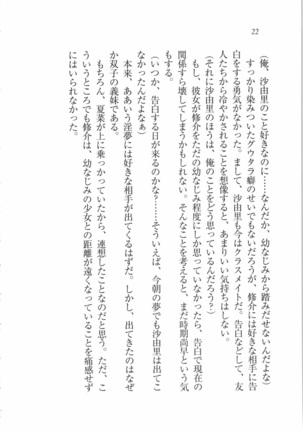 22
(俺、沙由里のこと好きなのに……なんだか、幼なじみから踏みだせないんだよな)
すっかり染みついたグウタラ癖のせいでもないだろうが、修介には好きな相手に告
白をする勇気がなかった。まして、沙由里もクラスメートだ。告白などして、友
人たちから冷やかされることを想像すると、あまりいい気持ちはしない。
(それに沙由里のほうは、俺のことをどう思っているんだろう?)
もし、彼女が修介をただの幼なじみ程度にしか思っていなかったら、告白で現在の
関係すら壊してしまうかもしれない。そんなことを考えると、まだ時期尚早という気
もする。
(いつか、告白する日が来るのかな?……そういえば、今朝の夢でも沙由里は出てこ
なかったんだよなぁ)
本来、ああいう淫夢には好きな相手が出てくるはずだ。しかし、出てきたのはなぜ
か双子の義妹である。
もちろん、夏菜が上に乗ったりしていたから、連想したことなのだと思う。ただ、こ
ういうところでも修介は、幼なじみの少女との距離が遠くなっていることを痛感せず
にはいられなかった。